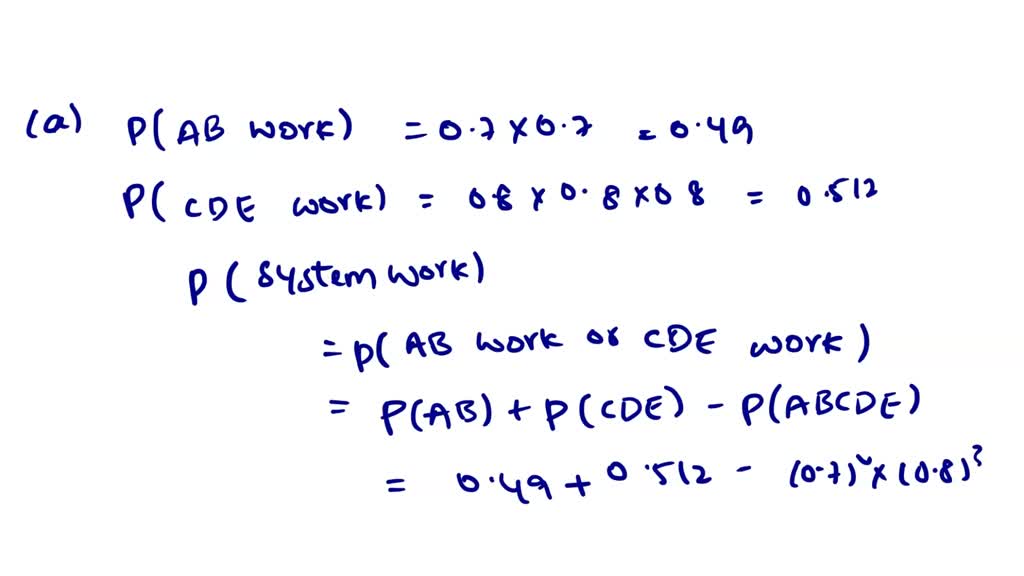 (a) P(AB work) = 0.7 x 0.7 = 0.49
P(CDE work) = 0.8 x 0.8 x 0 8 = 0.512
P(System work)
= p(AB work or CDE work)
= P(AB) + p(CDE) - P(ABCDE)
= 0.49 + 0.512 - (0.7)² x (0.8)³